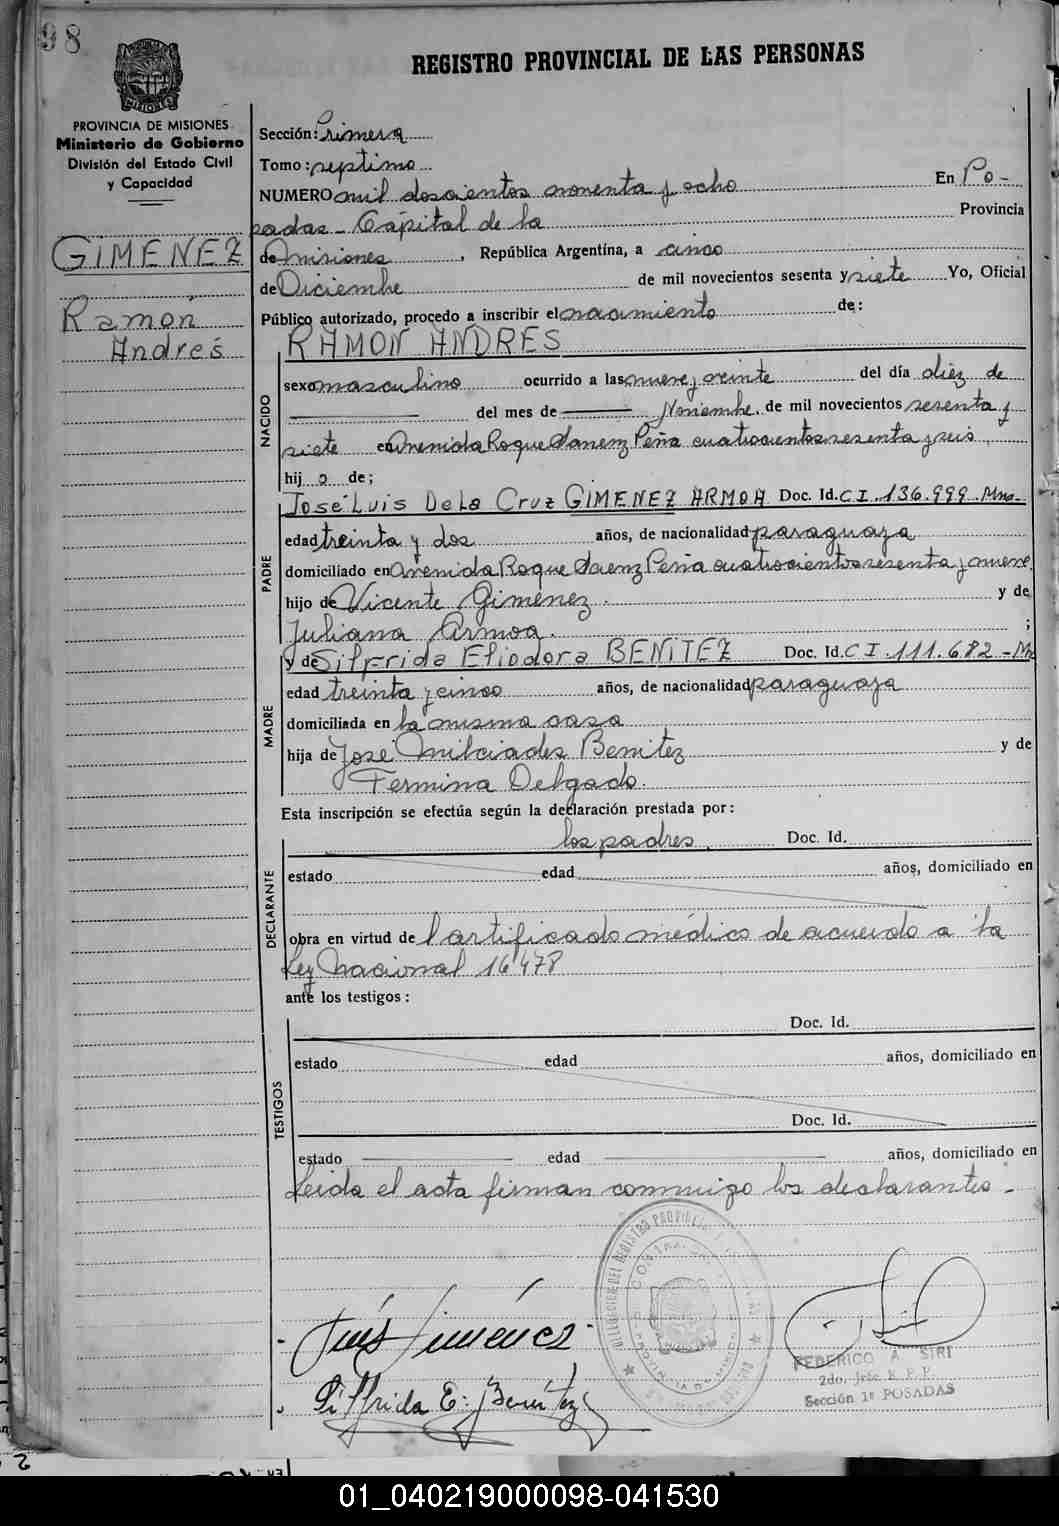 98
REGISTRO PROVINCIAL DE LAS PERSONAS
PROVINCIA DE MISIONES
Ministerio de Gobierno
División del Estado Civil
y Capacidad
GIMENEZ
Ramón
Andrés
Sección: Primera
Tomo: septimo
NUMERO mil doscientos noventa y ocho En Po-
sadas - Cápital de la Provincia
de Misiones, República Argentina, a cinco
de Diciembre de mil novecientos sesenta y siete Yo, Oficial
Público autorizado, procedo a inscribir el nacimiento de:
RAMON ANDRES
NACIDO
sexo masculino ocurrido a las nueve y veinte del día diez de
del mes de Noviembre, de mil novecientos sesenta y
siete en Avenida Roque Saenz Peña cuatrocientos sesenta y seis,
hij o de;
José Luis De La Cruz GIMENEZ ARMOA Doc. Id. C I . 136.999. Mnes-
PADRE
edad treinta y dos años, de nacionalidad paraguaya
domiciliado en avenida Roque Saenz Peña cuatrocientos sesenta y nueve,
hijo de Vicente Gimenez. y de
Juliana Armoa. ;
y de Silfrida Eliodora BENITEZ Doc. Id. C I . 111.682 - Mn
MADRE
edad treinta y cinco años, de nacionalidad paraguaya
domiciliada en la misma casa
hija de José Milciades Benitez y de
Fermina Delgado.
Esta inscripción se efectúa según la declaración prestada por:
los padres. Doc. Id.
DECLARANTE
estado edad años, domiciliado en
obra en virtud de l artificado médico de acuerdo a la
Ley Nacional 16478
ante los testigos:
Doc. Id.
TESTIGOS
estado edad años, domiciliado en
Doc. Id.
estado edad años, domiciliado en
Leida el acta firman conmigo los declarantes -
Luís Giménez
Silfrida E. Benítez
FEDERICO A SIRI
2do. Jefe R P P.
Sección 1ª POSADAS
01_040219000098-041530